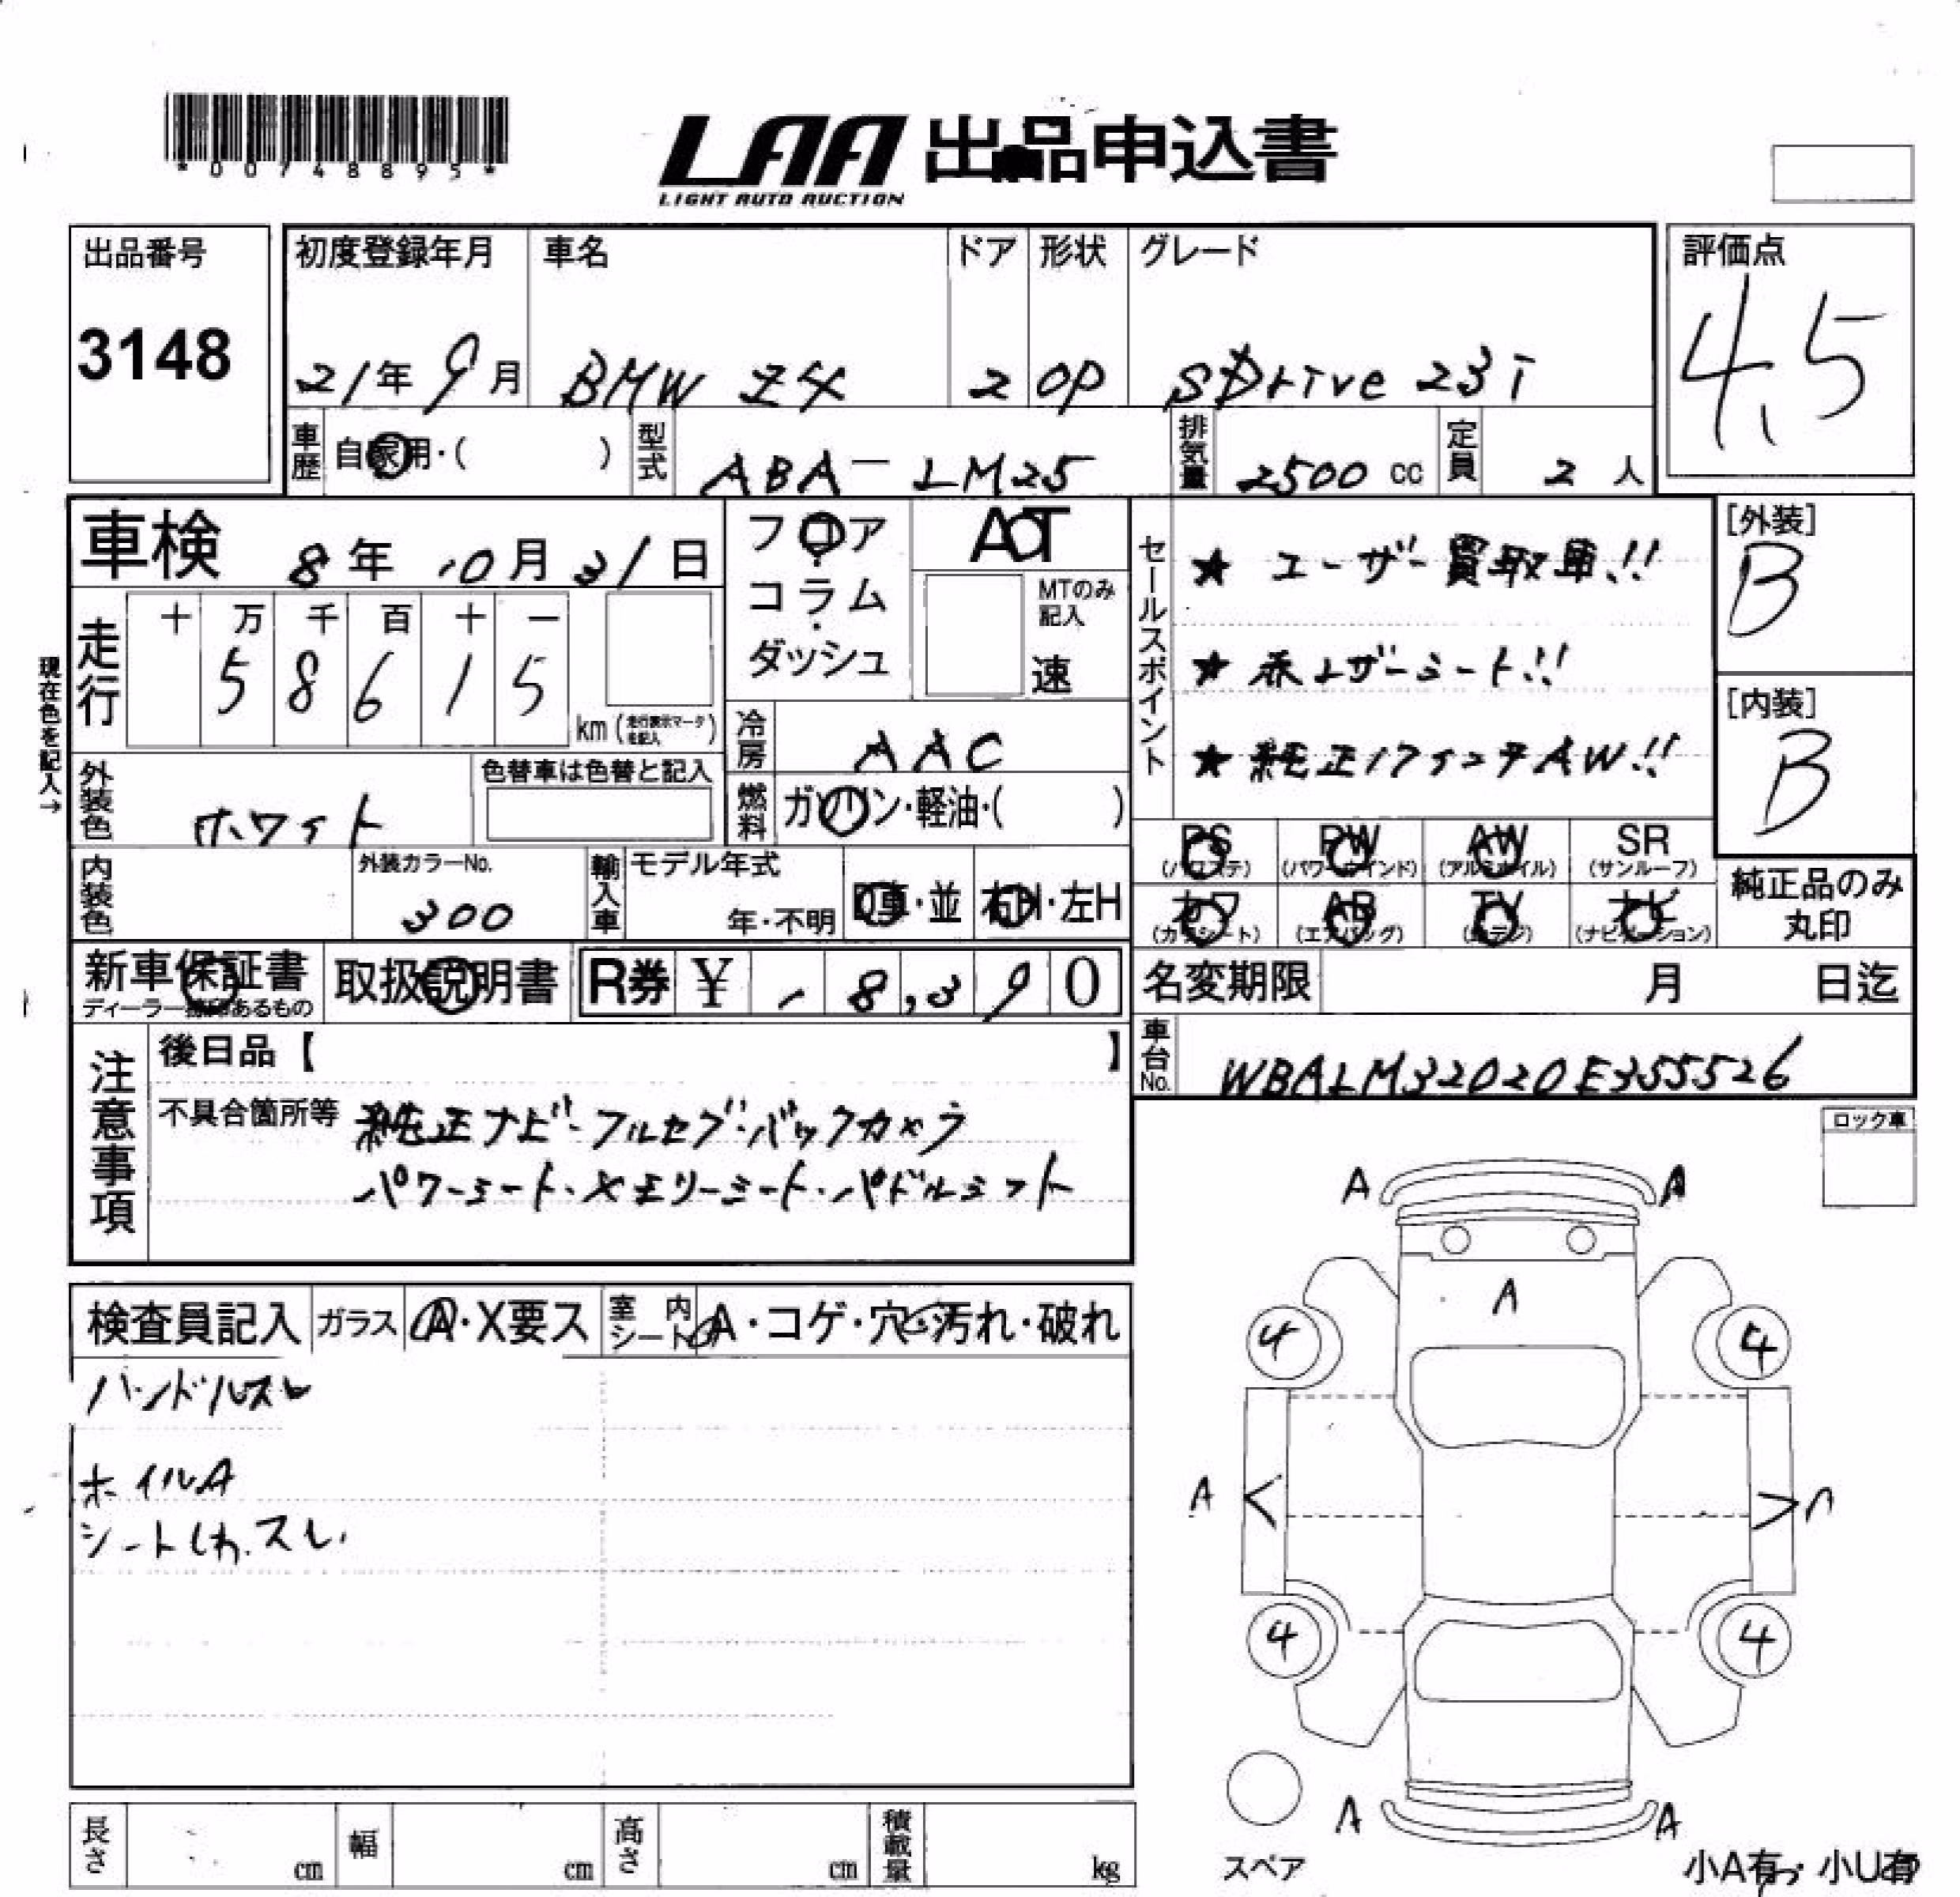 *00748895*
LAA 出品申込書
LIGHT AUTO AUCTION
出品番号
3148
初度登録年月
21年 9月
車名
BMW Z4
ドア
2
形状
OP
グレード
SDrive 23i
評価点
4.5
車歴 自家用・( )
型式 ABA-LM25
排気量 2500 cc
定員 2 人
車検 8年 10月 31日
フロア
コラム
ダッシュ
AT
MTのみ記入
速
セールスポイント
★ ユーザー買取車!!
★ 赤レザーシート!!
★ 純正17インチAW!!
[外装]
B
[内装]
B
現在色を記入→
走行
十 万 千 百 十 一
5 8 6 1 5
km (走行表示マークを記入)
冷房 AAC
外装色 ホワイト
色替車は色替と記入
燃料 ガソリン・軽油・( )
PS (パワステ) PW (パワーウインド) AW (アルミホイル) SR (サンルーフ)
カワ (カワシート) AB (エアバッグ) TV ナビ (ナビゲーション)
純正品のみ丸印
内装色
外装カラーNo.
300
輸入車
モデル年式
年・不明
D車・並
右H・左H
新車保証書
ディーラー捺印あるもの
取扱説明書
R券 ¥ - 8,390
名変期限 月 日迄
車台No. WBALM32020E355526
注意事項
後日品【 】
不具合箇所等 純正ナビ・フルセグ・バックカメラ
パワーシート・メモリーシート・パドルシフト
ロック車
検査員記入
ガラス A・X要ス
室内シート A・コゲ・穴・汚れ・破れ
ハンドルスレ
ホイルA
シートしわ.スレ.
A A
A
4 4
A A
4 4
A A
スペア
小A有・小U有
長さ cm
幅 cm
高さ cm
積載量 kg